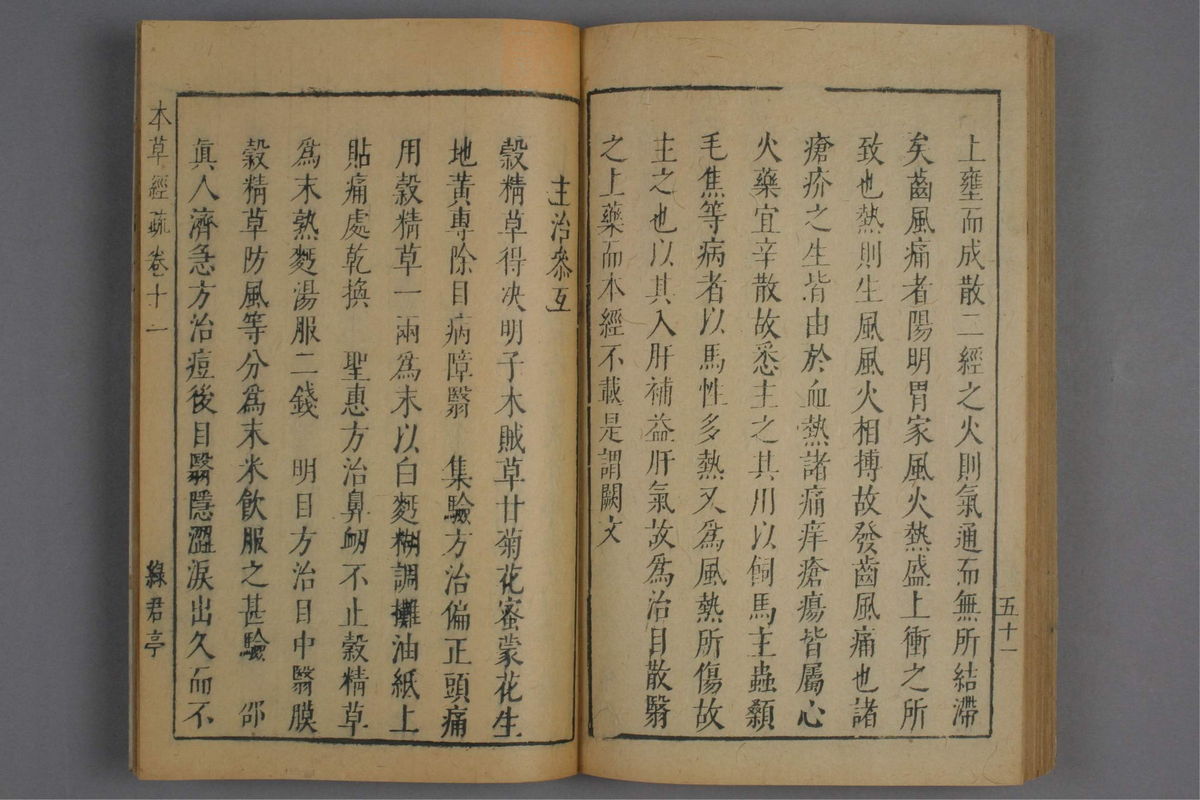 上壅而成散二經之火則氣通而無所結滯
矣齒風痛者陽明胃家風火熱盛上衝之所
致也熱則生風風火相搏故發齒風痛也諸
瘡疥之生皆由於血熱諸痛痒瘡瘍皆屬心
火藥宜辛散故悉主之其用以飼馬主蟲顙
毛焦等病者以馬性多熱又為風熱所傷故
主之也以其入肝補益肝氣故為治目散翳
之上藥而本經不載是謂闕文
五十一
主治叅互
穀精草得決明子木賊草甘菊花蜜蒙花生
地黃專除目病障翳　集驗方治偏正頭痛
用穀精草一兩為末以白麪糊調攤油紙上
貼痛處乾換　聖惠方治鼻衂不止穀精草
為末熟麪湯服二錢　明目方治目中翳膜
穀精草防風等分為末米飲服之甚驗　邵
眞人濟急方治痘後目翳隱澀淚出久而不
本草經疏卷十一
綠君亭